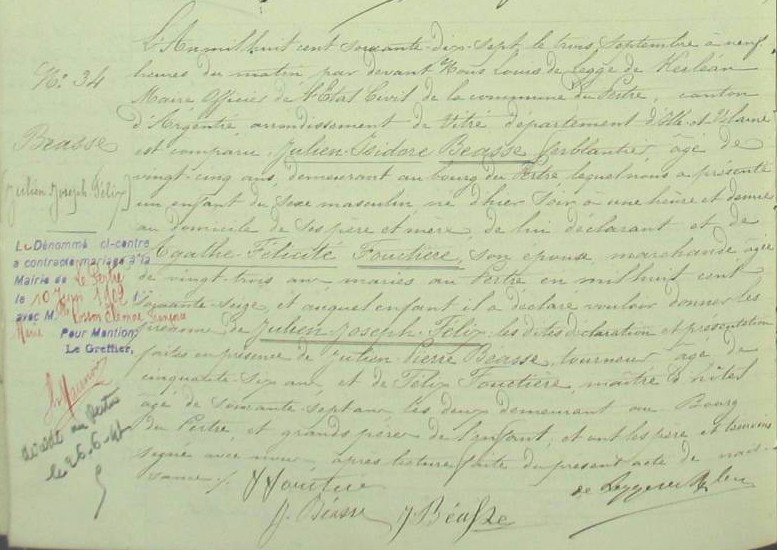 L'An mil huit cent soixante-dix-sept, le trois Septembre à neuf
heures du matin par devant Nous Louis de Legge de Kerléan
Maire Officier de l'Etat Civil de la commune du Pertre, canton
d'Argentré arrondissement de Vitré département d'Ille-et-Vilaine
est comparu Julien-Isidore Béasse, ferblantier, âgé de
vingt-cinq ans, demeurant au bourg du Pertre lequel nous a présenté
un enfant du sexe masculin né d'hier Soir à une heure et demie
au domicile de ses père et mère, de lui déclarant et de
Agathe-Félicité Fouctière, son épouse marchande, agée
de vingt-trois ans mariés au Pertre en mil huit cent
soixante-seize, et auquel enfant il a déclaré vouloir donner les
prénoms de Julien-Joseph-Félix les dites déclaration et présentation
faites en présence de Julien Pierre Béasse, tourneur âgé de
cinquante-six ans, et de Félix Fouctière, maître d'hôtel
agé de soixante-sept ans, les deux demeurant au Bourg
du Pertre, et grands-pères de l'enfant, et ont les père et témoins
signé avec nous, après lecture faite du présent acte de nais-
sance ./.
J Béasse
J Béasse
No 34
Béasse
(Julien Joseph Félix)
Le Dénommé ci-contre
a contracté mariage à la
Mairie de Le Pertre
le 10 juin 1902
avec M
Marie
Pour Mention:
Le Greffier,
décédé au Pertre
le 26.6.41